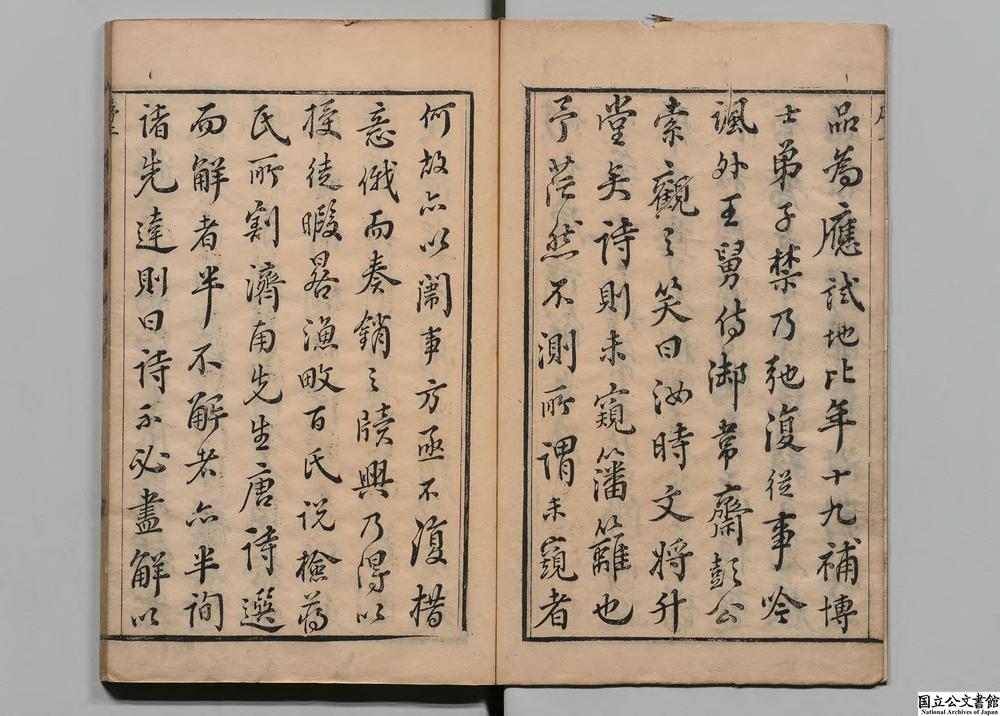 品為應試地比年十九補博
士弟子禁乃弛復從事吟
諷外王舅侍御常齋彭公
索觀之笑曰汝時文將升
堂矣詩則未窺籓籬也
予茫然不測所謂未窺者
何故亦以闈事方亟不復措
意俄而奏銷之牘興乃得以
授徒暇畧漁畋百氏說撿舊
氏所割濟南先生唐詩選
而解者半不解者亦半詢
諸先達則曰詩不必盡解以
国立公文書館
National Archives of Japan